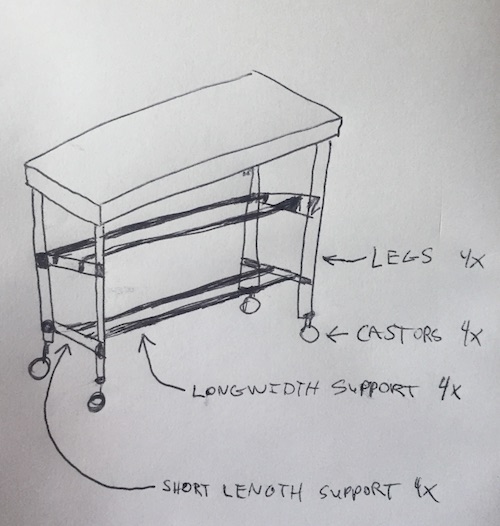 LEGS 4x
CASTORS 4x
LONGWIDTH SUPPORT 4x
SHORT LENGTH SUPPORT 4x